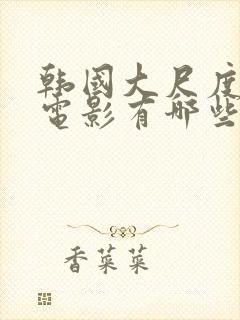 韩国大尺度
电影有哪些
香菜菜